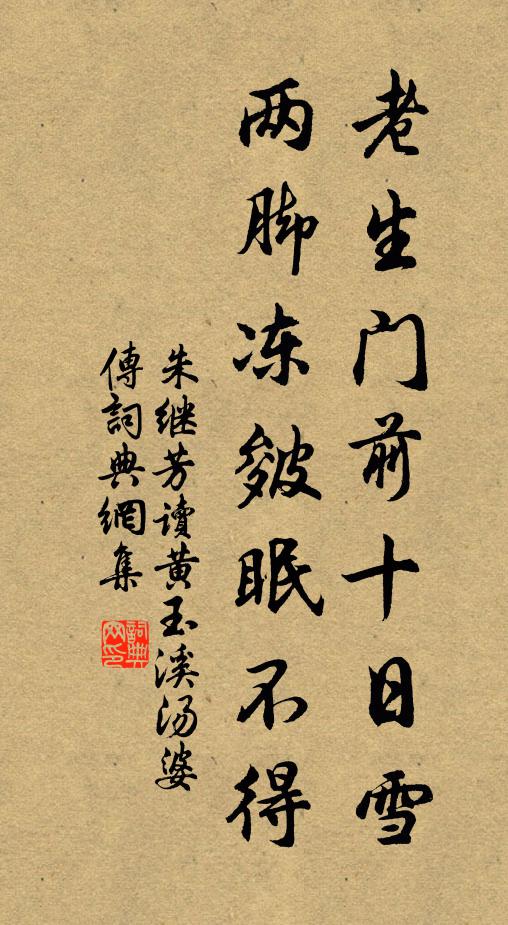 老生门前十日雪
两脚冻皴眠不得
朱继芳读黄玉溪汤婆
傳詞典網集
詞典网印